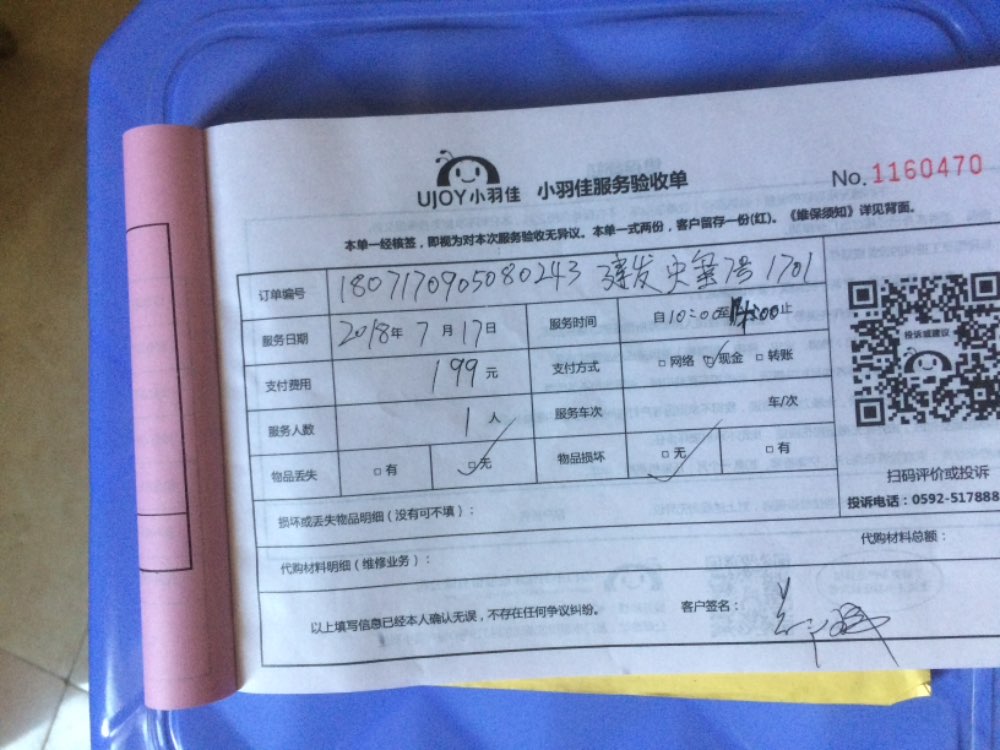 UJOY小羽佳 小羽佳服务验收单
No. 1160470
本单一经核签，即视为对本次服务验收无异议。本单一式两份，客户留存一份(红)。《维保须知》详见背面。
订单编号 1807170905080243 建发央玺7号1701
服务日期 2018年7月17日 服务时间 自10:00至 止
支付费用 199元 支付方式 □网络 ☑现金 □转账
服务人数 1人 服务车次 车/次
物品丢失 □有 ☑无 物品损坏 ☑无 □有
投诉或建议
扫码评价或投诉
投诉电话：0592-517888
损坏或丢失物品明细（没有可不填）：
代购材料明细（维修业务）： 代购材料总额：
以上填写信息已经本人确认无误，不存在任何争议纠纷。 客户签名：